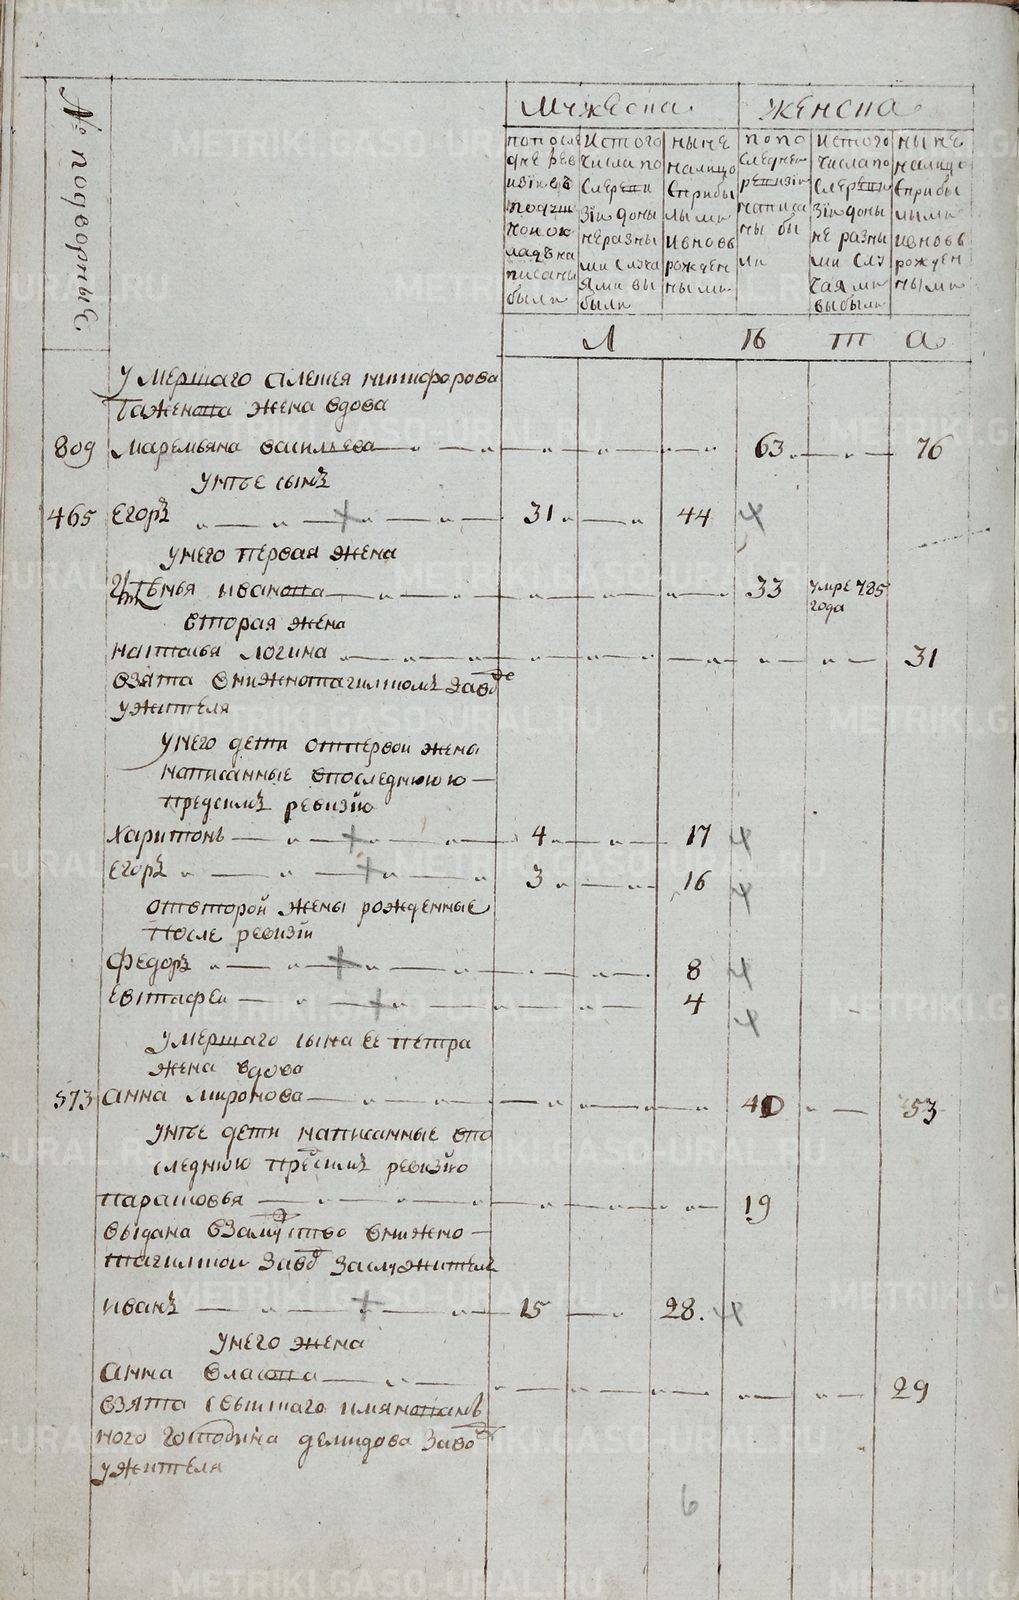 № подворные.
Мужеска.
женска
по после
дне рев
изи въ
подуш
ном ок
ладъ на
писаны
были
Ис того
числа по
сле реви
зiи до ны
не разны
ми случа
ями вы
были
ныне
налицо
с прибы
лыми
и вновь
рожден
ными
по по
следнеи
ревизiи
написа
ны бы
ли
ис того
числа по
сле реви
зiи до ны
не разны
ми слу
чаями
выбыли
ныне
налицо
с прибы
лыми
и вновь
рожден
ными
Л 16 т а
умершаго алексея никифорова
баженова жена вдова
809 Маремьяна васильева 63 76
у нее сынъ
465 Егоръ 31 44
у него первая жена
ивановна 33 умре 785
года
вторая жена
наталья логина 31
взята в нижнотагилскомъ заводе
у жителя
у него дети от первои жены
написанные в последнюю
пред симъ ревизiю
харитонъ 4 17
Егоръ 3 16
от второй жены рожденные
после ревизiи
Федоръ 8
Евстафеи 4
умершаго сына ее петра
жена вдова
573 Анна миронова 40 53
у нее дети написанные в по
следнюю пред симъ ревизiю
парасковья 19
выдана в замужство в нижно
тагилскои завод за служителя
иванъ 15 28.
у него жена
Анна власовна 29
взята с вышшаго имянован
ного господина демидова завода
у жителя
6
METRIKI.GASO-URAL.RU